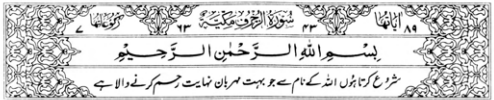 اٰیاتہا ۸۹ ۴۳ سُوْرَۃُ الزُّخْرُفِ مَکِّیَّۃٌ ۶۳ رکوعاتہا ۷
بِسْمِ اللهِ الرَّحْمٰنِ الرَّحِيْمِ
شروع کرتا ہوں اللہ کے نام سے جو بہت مہربان نہایت رحم کرنے والا ہے